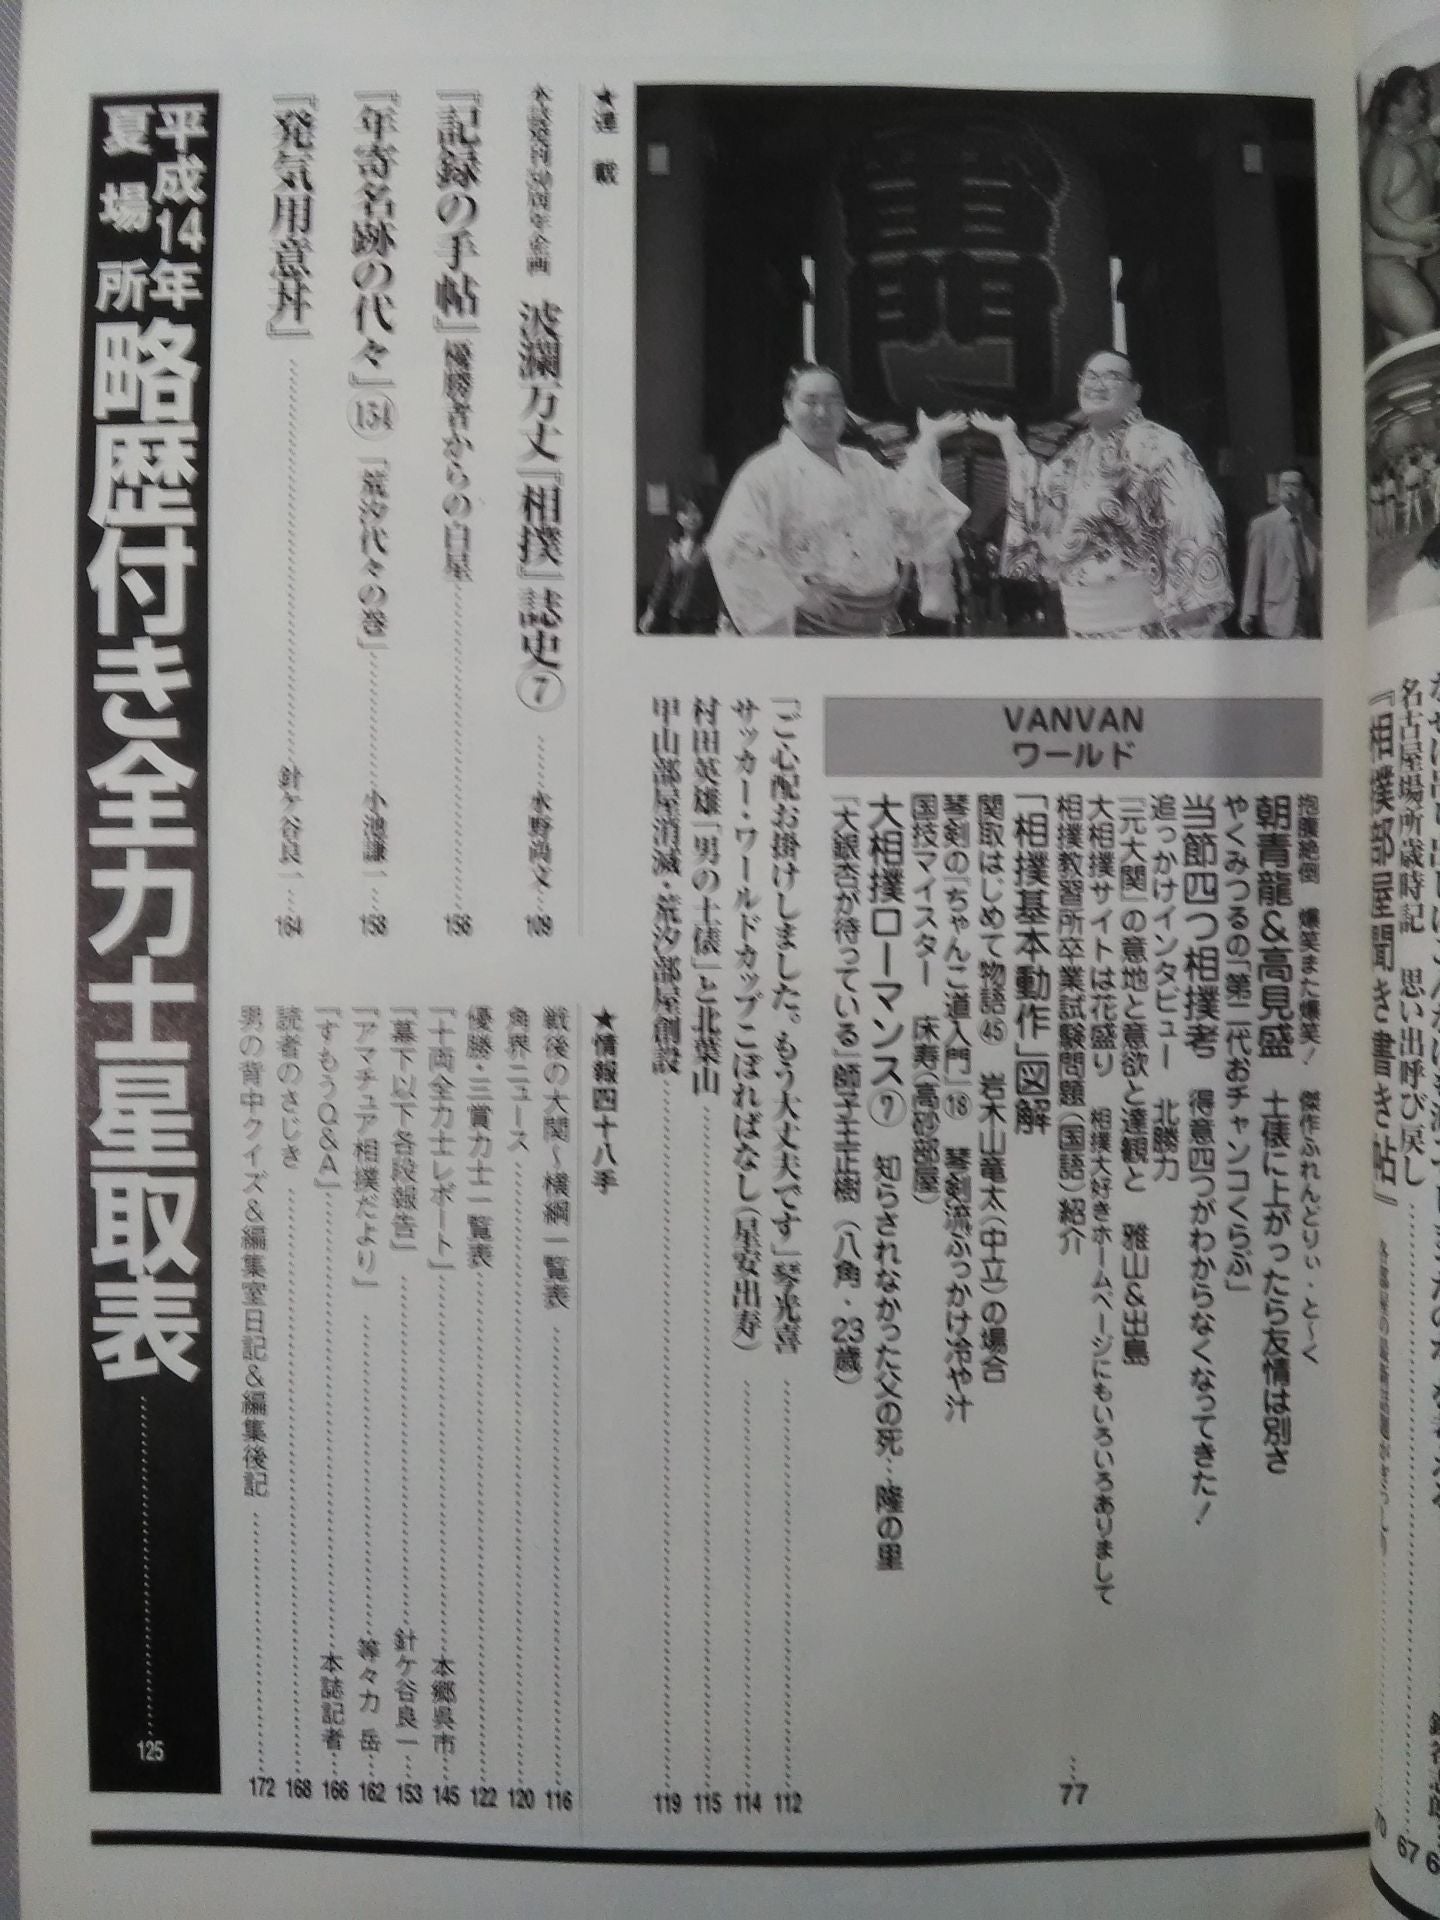 雷門
VANVAN
ワールド
抱腹絶倒 爆笑また爆笑! 傑作ふれんどりぃ・と〜く
朝青龍&高見盛 土俵に上がったら友情は別さ
やくみつるの「第二代おチャンコくらぶ」
当節四つ相撲考 得意四つがわからなくなってきた!
追っかけインタビュー 北勝力
『元大関』の意地と意欲と達観と 雅山&出島
大相撲サイトは花盛り 相撲大好きホームページにもいろいろありまして
相撲教習所卒業試験問題(国語)紹介
「相撲基本動作」図解
77
関取はじめて物語㊺ 岩木山竜太(中立)の場合
琴剣の『ちゃんこ道入門』⑱ 琴剣流ぶっかけ冷や汁
国技マイスター 床寿(高砂部屋)
大相撲ローマンス⑦ 知らされなかった父の死…隆の里
『大銀杏が待っている』師子王正樹(八角・23歳)
「ご心配お掛けしました。もう大丈夫です」琴光喜 112
サッカー・ワールドカップこぼればなし(星安出寿) 114
村田英雄「男の土俵」と北葉山 115
甲山部屋消滅・荒汐部屋創設 119
★連載
波瀾万丈『相撲』誌史⑦ 水野尚文 109
『記録の手帖』優勝者からの白星 156
『年寄名跡の代々』(154)「荒汐代々の巻」 小池謙一 158
『発気用意丼』 針ケ谷良一 164
★情報四十八手
戦後の大関〜横綱一覧表 116
角界ニュース 120
優勝・三賞力士一覧表 122
「十両全力士レポート」 本郷呉市 145
「幕下以下各段報告」 針ケ谷良一 153
「アマチュア相撲だより」 等々力 岳 162
「すもうQ&A」 本誌記者 166
読者のさじき 168
男の背中クイズ&編集室日記&編集後記 172
平成14年
夏場所
略歴付き全力士星取表 125
名古屋場所歳時記 思い出呼び戻し
67
『相撲部屋聞き書き帖』
70